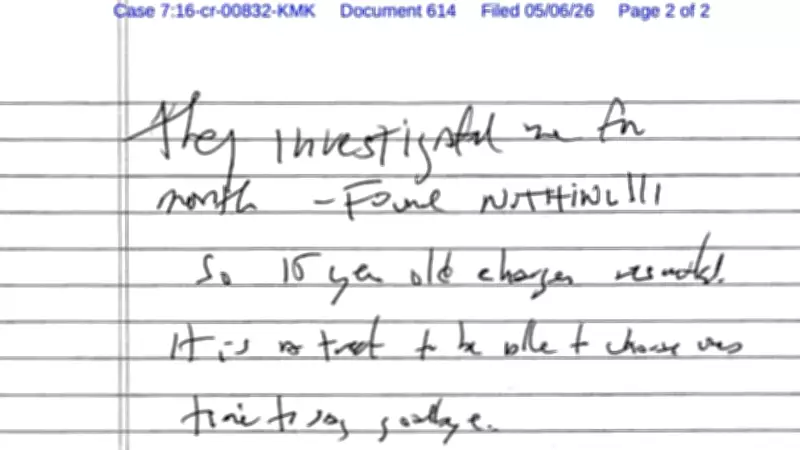 Case 7:16-cr-00832-KMK Document 614 Filed 05/06/26 Page 2 of 2
They investigated me for
month - Found NOTHING!!!
So 15 year old charges
It is a treat to be able to choose
time to say goodbye.